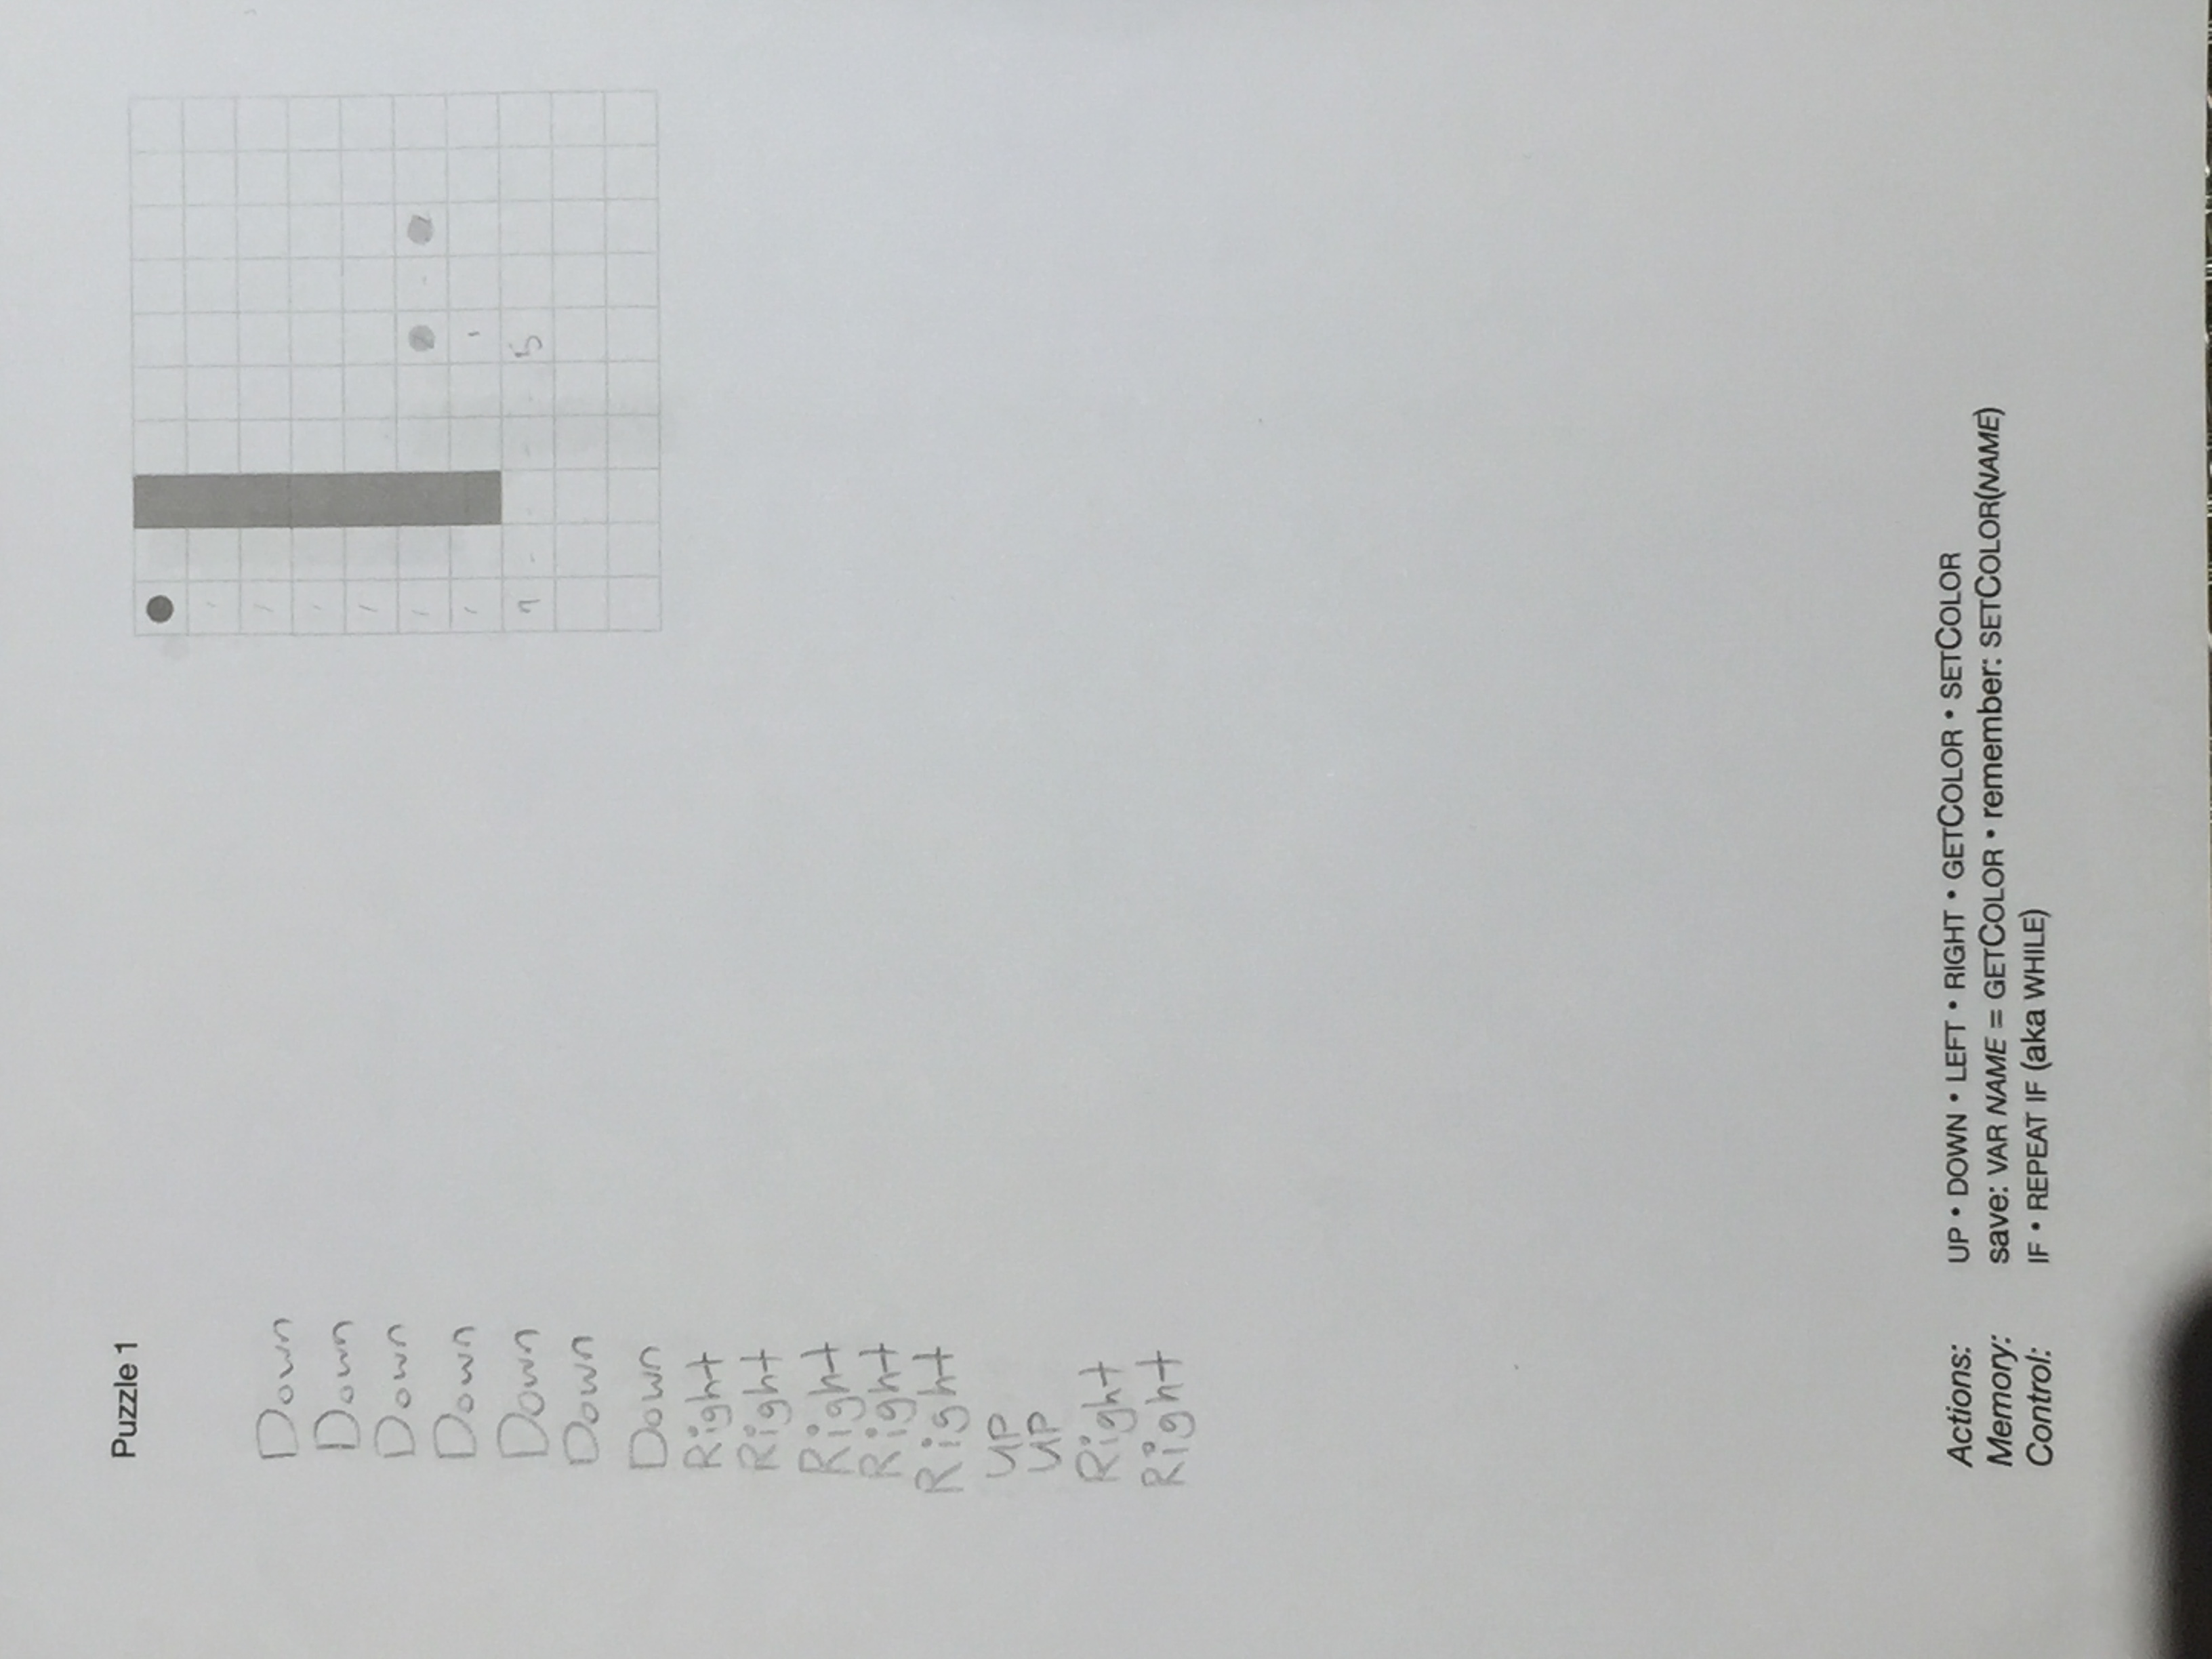 Puzzle 1
Down
Down
Down
Down
Down
Down
Down
Right
Right
Right
Right
Right
UP
UP
Right
Right
7 - - - - 5
Actions: UP • DOWN • LEFT • RIGHT • GETCOLOR • SETCOLOR
Memory: save: VAR NAME = GETCOLOR • remember: SETCOLOR(NAME)
Control: IF • REPEAT IF (aka WHILE)